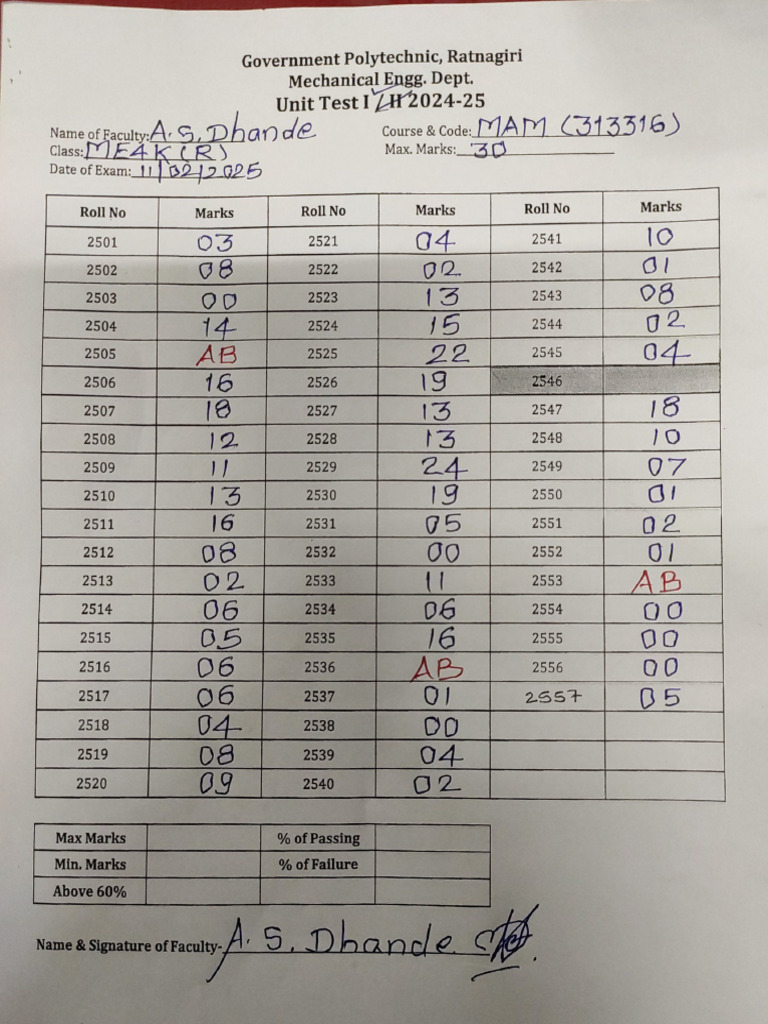 Government Polytechnic, Ratnagiri
Mechanical Engg. Dept.
Unit Test I / II 2024-25
Name of Faculty: A. S. Dhande Course & Code: MAM (313316)
Class: ME4K (R) Max. Marks: 30
Date of Exam: 11/02/2025
Roll No Marks Roll No Marks Roll No Marks
2501 03 2521 04 2541 10
2502 08 2522 02 2542 01
2503 00 2523 13 2543 08
2504 14 2524 15 2544 02
2505 AB 2525 22 2545 04
2506 16 2526 19 2546
2507 18 2527 13 2547 18
2508 12 2528 13 2548 10
2509 11 2529 24 2549 07
2510 13 2530 19 2550 01
2511 16 2531 05 2551 02
2512 08 2532 00 2552 01
2513 02 2533 11 2553 AB
2514 06 2534 06 2554 00
2515 05 2535 16 2555 00
2516 06 2536 AB 2556 00
2517 06 2537 01 2557 05
2518 04 2538 00
2519 08 2539 04
2520 09 2540 02
Max Marks % of Passing
Min. Marks % of Failure
Above 60%
Name & Signature of Faculty- A. S. Dhande